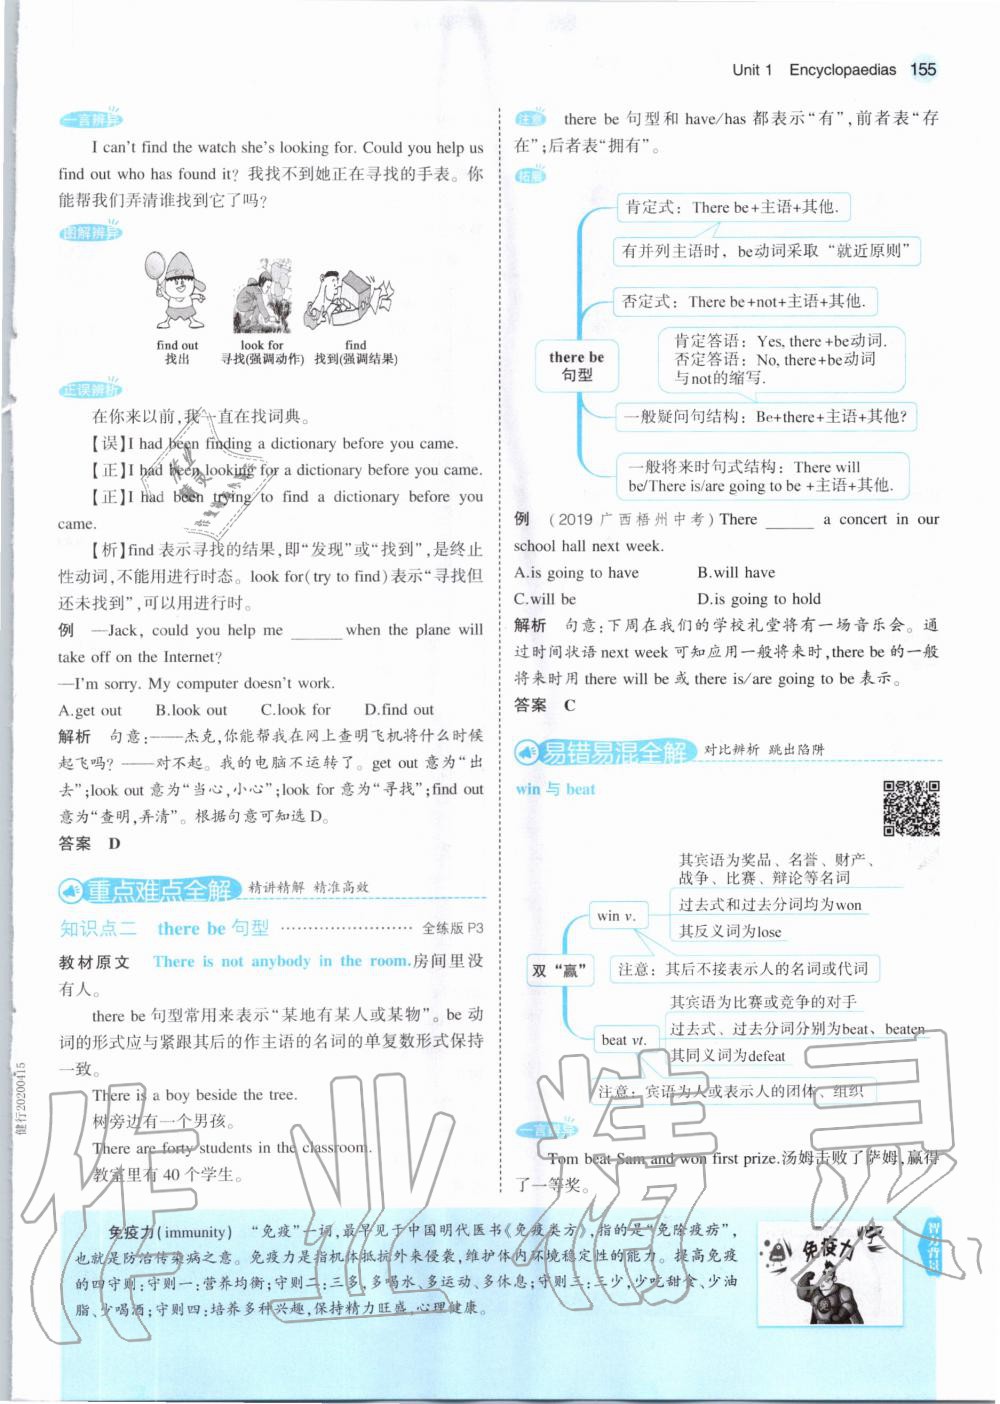 Unit 1 Encyclopaedias 155
一言辨异
I can't find the watch she's looking for. Could you help us
find out who has found it? 我找不到她正在寻找的手表。你
能帮我们弄清谁找到它了吗?
图解辨异
find out look for find
找出 寻找(强调动作) 找到(强调结果)
正误辨析
在你来以前,我一直在找词典。
【误】I had been finding a dictionary before you came.
【正】I had been looking for a dictionary before you came.
【正】I had been trying to find a dictionary before you
came.
【析】find 表示寻找的结果,即“发现”或“找到”,是终止
性动词,不能用进行时态。look for(try to find)表示“寻找但
还未找到”,可以用进行时。
例 —Jack, could you help me ______ when the plane will
take off on the Internet?
—I'm sorry. My computer doesn't work.
A.get out B.look out C.look for D.find out
解析 句意:——杰克,你能帮我在网上查明飞机将什么时候
起飞吗? ——对不起。我的电脑不运转了。get out 意为“出
去”;look out 意为“当心,小心”;look for 意为“寻找”;find out
意为“查明,弄清”。根据句意可知选 D。
答案 D
重点难点全解 精讲精解 精准高效
知识点二 there be 句型 ························ 全练版 P3
教材原文 There is not anybody in the room.房间里没
有人。
there be 句型常用来表示“某地有某人或某物”。be 动
词的形式应与紧跟其后的作主语的名词的单复数形式保持
一致。
There is a boy beside the tree.
树旁边有一个男孩。
There are forty students in the classroom.
教室里有 40 个学生。
注意 there be 句型和 have/has 都表示“有”,前者表“存
在”;后者表“拥有”。
拓展
there be
句型
肯定式：There be+主语+其他.
有并列主语时，be动词采取“就近原则”
否定式：There be+not+主语+其他.
肯定答语：Yes, there +be动词.
否定答语：No, there+be动词
与not的缩写.
一般疑问句结构：Be+there+主语+其他?
一般将来时句式结构：There will
be/There is/are going to be +主语+其他.
例 (2019 广西梧州中考)There ______ a concert in our
school hall next week.
A.is going to have B.will have
C.will be D.is going to hold
解析 句意:下周在我们的学校礼堂将有一场音乐会。通
过时间状语 next week 可知应用一般将来时,there be 的一般
将来时用 there will be 或 there is/are going to be 表示。
答案 C
易错易混全解 对比辨析 跳出陷阱
win 与 beat
双“赢”
win v.
其宾语为奖品、名誉、财产、
战争、比赛、辩论等名词
过去式和过去分词均为won
其反义词为lose
注意：其后不接表示人的名词或代词
beat vt.
其宾语为比赛或竞争的对手
过去式、过去分词分别为beat、beaten
其同义词为defeat
注意：宾语为人或表示人的团体、组织
一言辨异
Tom beat Sam and won first prize.汤姆击败了萨姆,赢得
了一等奖。
免疫力(immunity) “免疫”一词,最早见于中国明代医书《免疫类方》,指的是“免除疫疠”,
也就是防治传染病之意。免疫力是指机体抵抗外来侵袭,维护体内环境稳定性的能力。提高免疫
的四守则:守则一:营养均衡;守则二:三多,多喝水、多运动、多休息;守则三:三少,少吃甜食、少油
脂、少喝酒;守则四:培养多种兴趣,保持精力旺盛,心理健康。
免疫力
智力背景
健行20200415
作业精灵